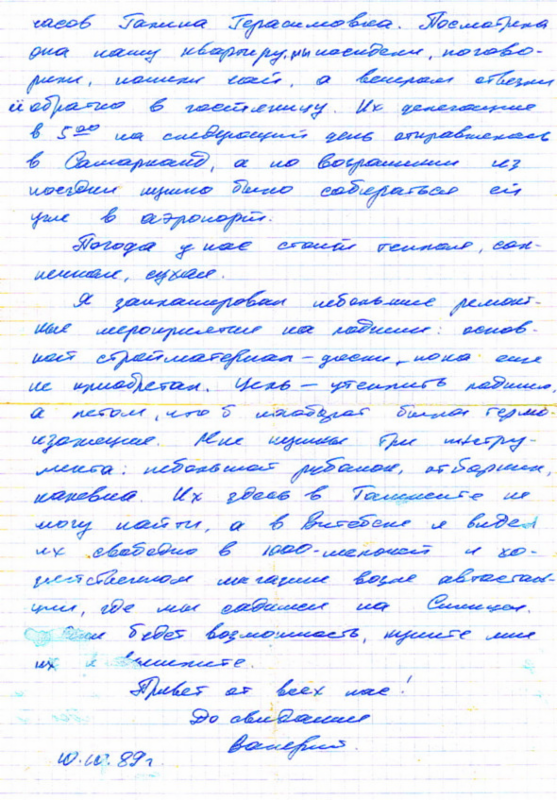 часов Галина Герасимовна. Посмотрела
она нашу квартиру, мы посидели, погово-
рили, попили чай, а вечером отвезли
её обратно в гостиницу. Их делегация
в 5⁰⁰ на следующий день отправлялась
в Самарканд, а по возращении из
поездки нужно было собираться ей
уже в аэропорт.
Погода у нас стоит теплая, сол-
нечная, сухая.
Я запланировал небольшие ремонт-
ные мероприятия на лоджии: основ-
ной стройматериал – доски, пока ещё
не приобретал. Цель – утеплить лоджию,
а летом, что б наоборот была термо-
изоляция. Мне нужны три инстру-
мента: небольшой рубанок, отборник,
калевка. Их здесь в Ташкенте не
могу найти, а в Витебске я видел
их свободно в 1000-мелочей и хо-
зяйственном магазине возле автостан-
ции, где мы садимся на
будет возможность, купите мне
их и вышлите.
Привет от всех нас!
До свидания
Валерий.
10.10.89г.